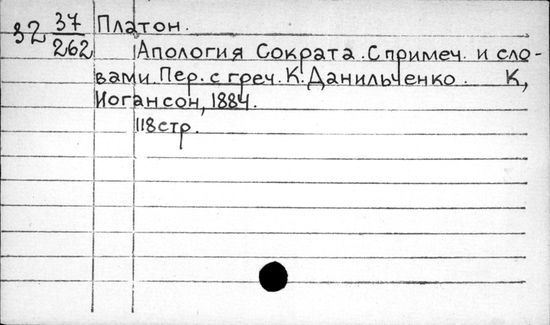 32 37/262 Платон.
Апология Сократа. С примеч. и сло-
вами. Пер. с греч. К. Данильченко. К,
Иогансон, 1884.
118 стр.